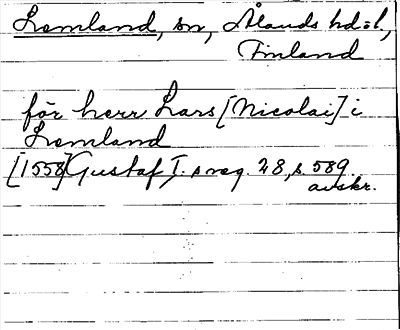 Lemland, sn, Ålands hd:t.,
Finland
för herr Lars [Nicolai] i
Lemland
[1558] Gustaf I:s reg. 28, s. 589.
avskr.